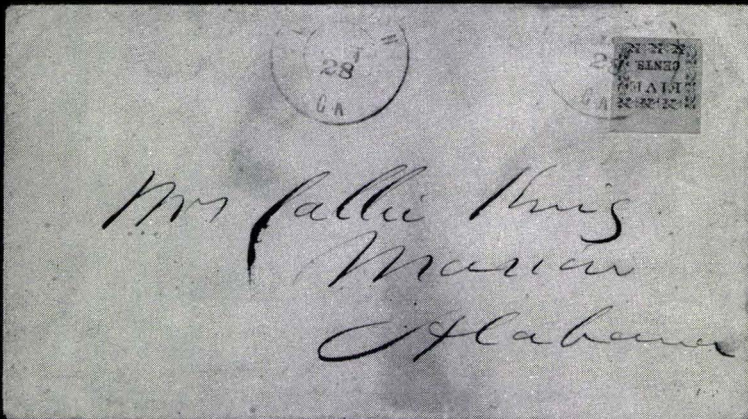 28
GA
28
GA
FIVE
CENTS
Mrs Callie King
Marion
Alabama